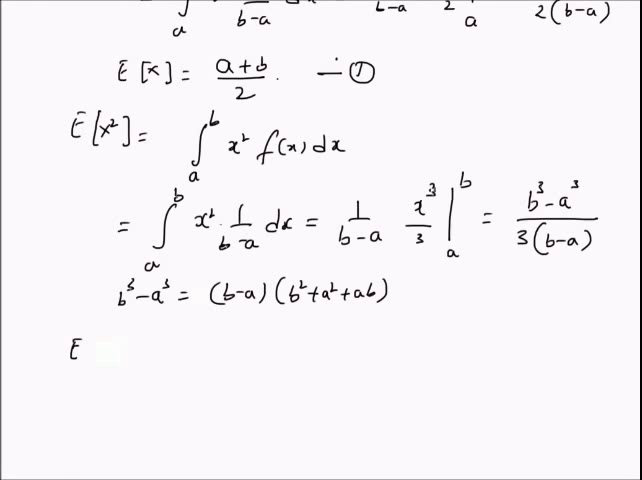 ∫ₐ b-a b-a 2 a 2(b-a)
E[x] = a+b/2 . — ①
E[x²] = ∫ₐᵇ x² f(x) dx
= ∫ₐᵇ x² · 1/b-a dx = 1/b-a x³/3 |ₐᵇ = b³-a³/3(b-a)
b³-a³ = (b-a)(b²+a²+ab)
E